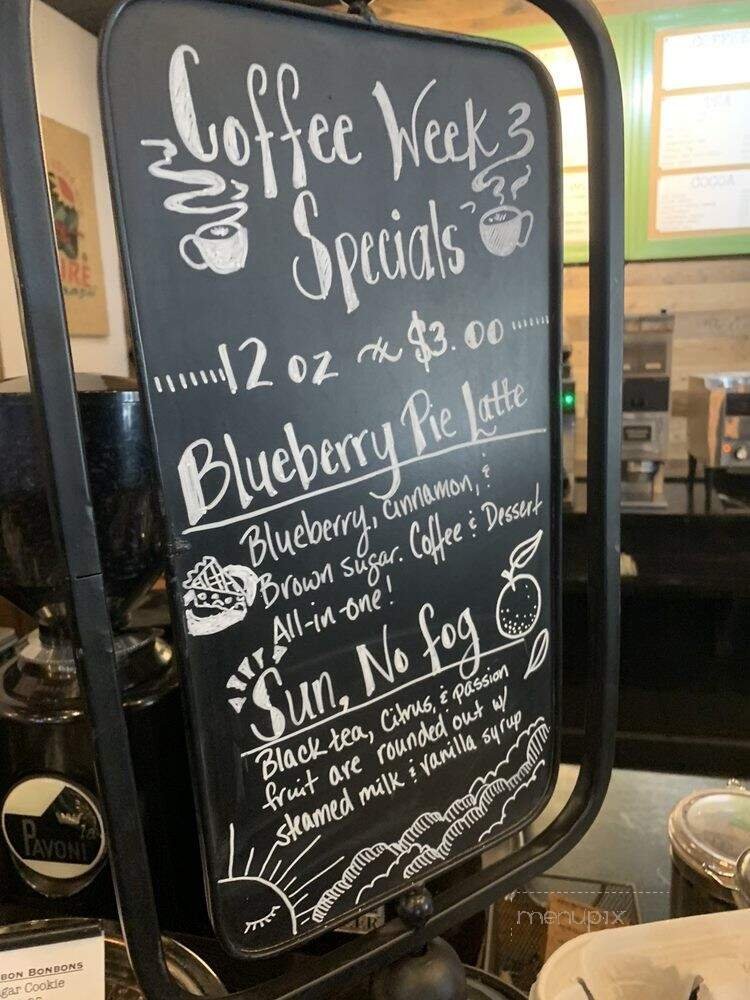 Coffee Week
Specials
12 oz ~ $3.00
Blueberry Pie Latte
Blueberry, cinnamon, &
Brown sugar. Coffee & Dessert
All-in-one!
Sun, No fog
Black tea, Citrus, & passion
fruit are rounded out w/
steamed milk & vanilla syrup
PAVONI
BON BONBONS
gar Cookie
COFFEE
TEA
COCOA
menupix